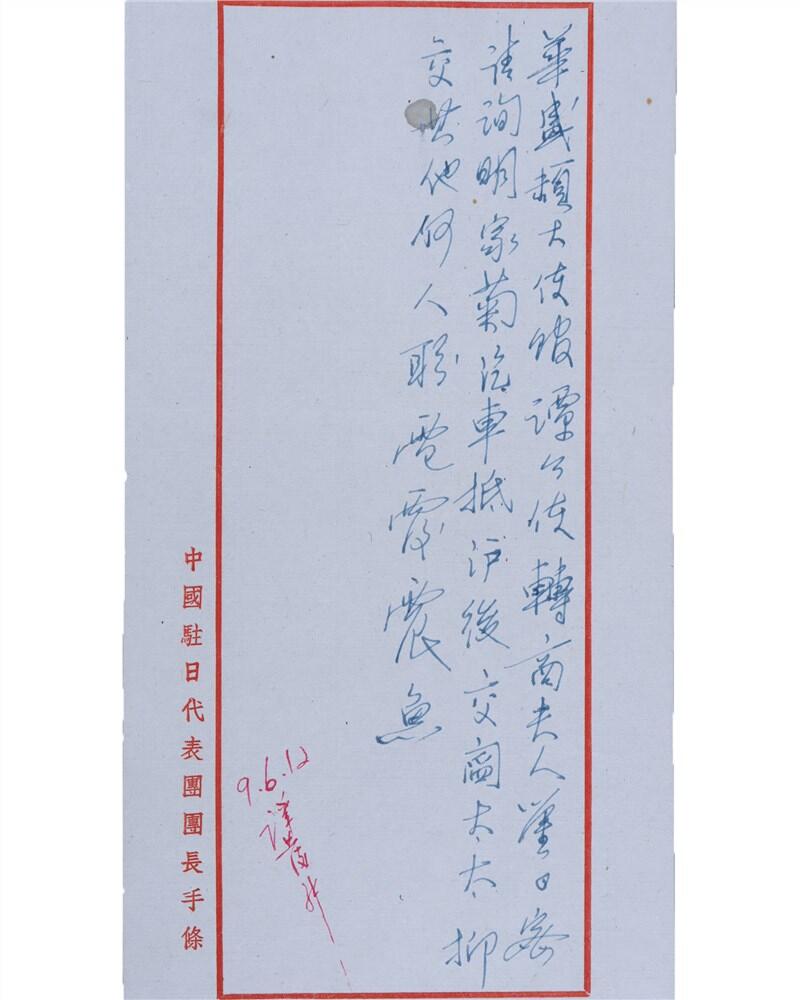 華盛頓大使館譚公使轉商夫人 日密
請詢明家菊汽車抵沪後交商太太抑
交其他何人盼電覆震魚
9.6.12
譯發
中國駐日代表團團長手條